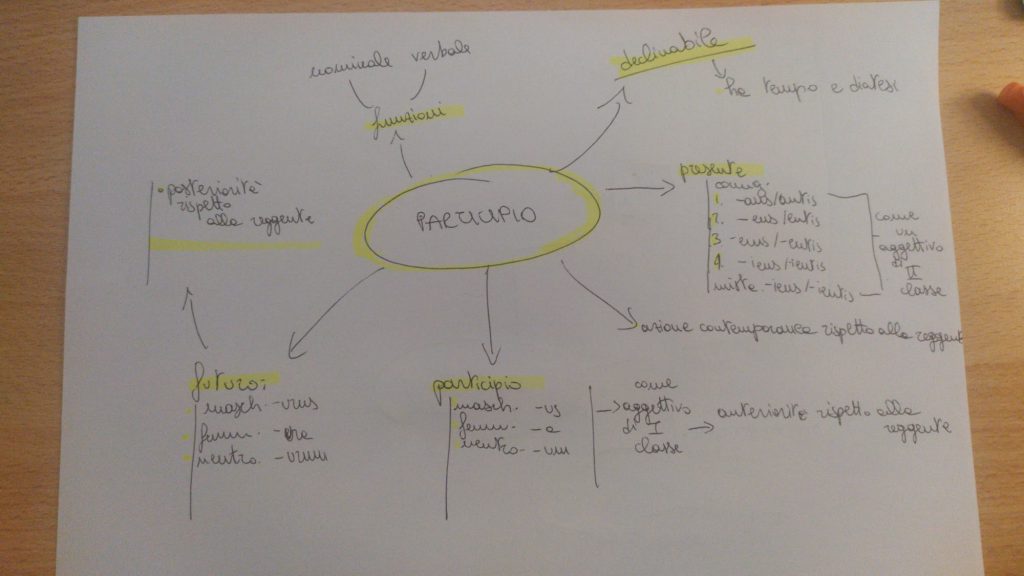 nominale verbale
funzioni
declinabile
ha tempo e diatesi
PARTICIPIO
presente
coniug.
1. -ans/antis
2. -ens/entis
3 -ens/-entis
4. -iens/ientis
miste. -iens/-ientis
come
un
aggettivo
di II
classe
azione contemporanea rispetto alla reggente
posteriorità
rispetto
alla reggente
futuro:
masch. -urus
femm. -ura
neutro. -urum
participio
masch. -us
femm. -a
neutro. -um
come
aggettivo
di I
classe
anteriorità rispetto alla
reggente